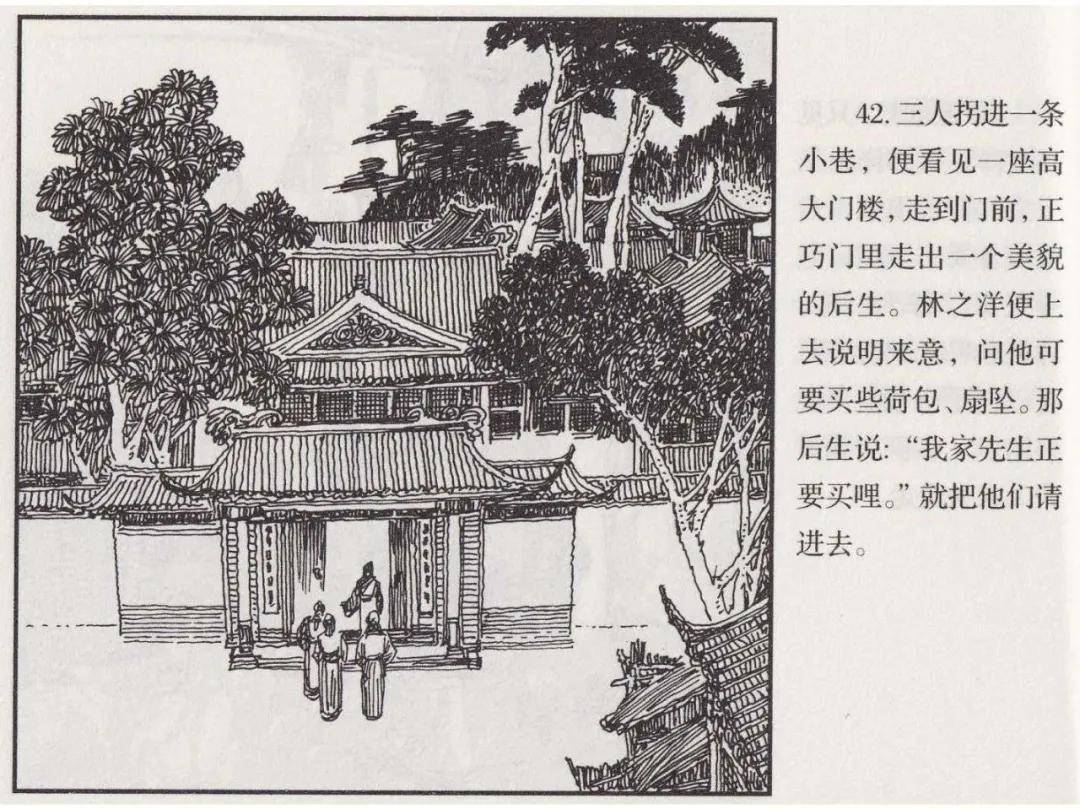 42. 三人拐进一条
小巷，便看见一座高
大门楼，走到门前，正
巧门里走出一个美貌
的后生。林之洋便上
去说明来意，问他可
要买些荷包、扇坠。那
后生说：“我家先生正
要买哩。”就把他们请
进去。